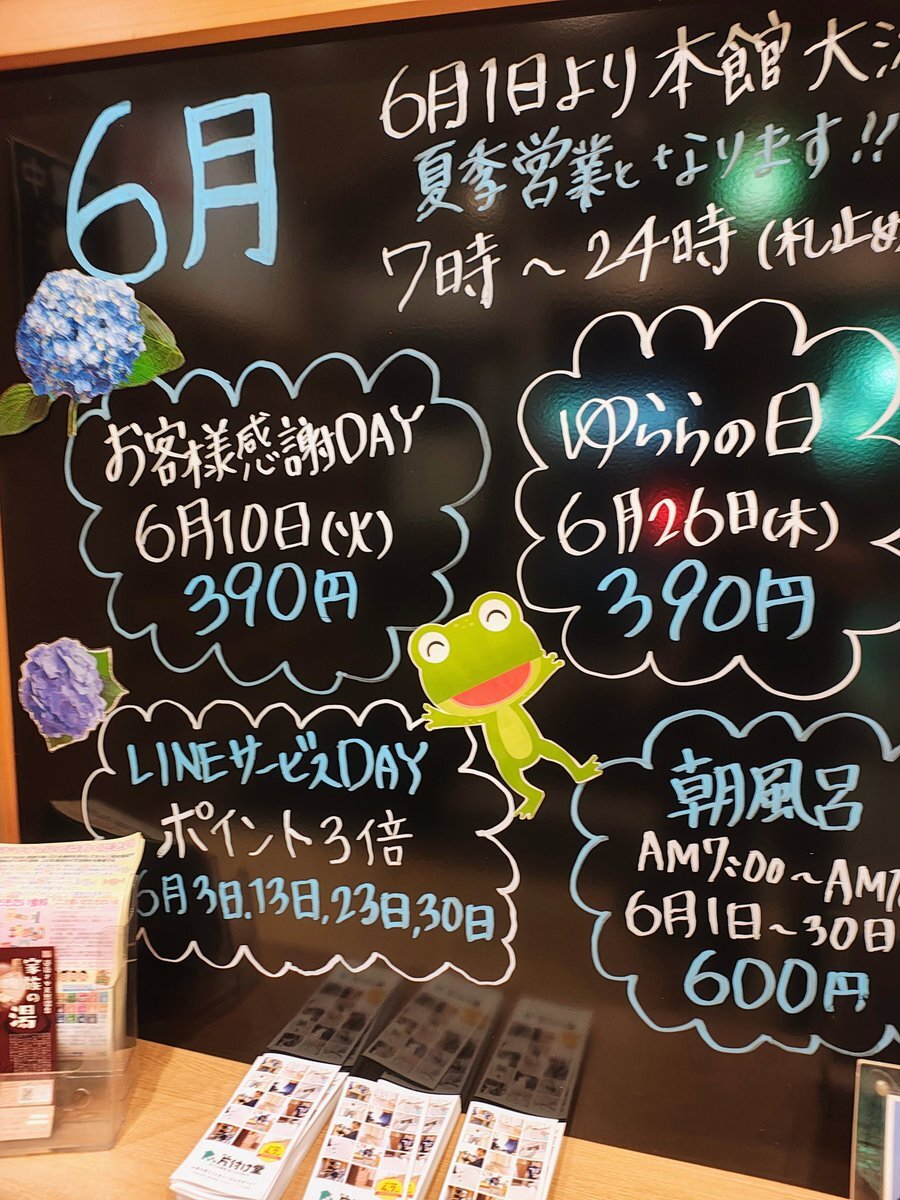 6月
6月1日より本館大
夏季営業となります!!
7時~24時(札止め
お客様感謝DAY
6月10日(火)
390円
ゆららの日
6月26日(木)
390円
LINEサービスDAY
ポイント3倍
6月3日,13日,23日,30日
朝風呂
AM7:00~AM7
6月1日~30日
600円
家族の湯
片付け堂
片付け堂